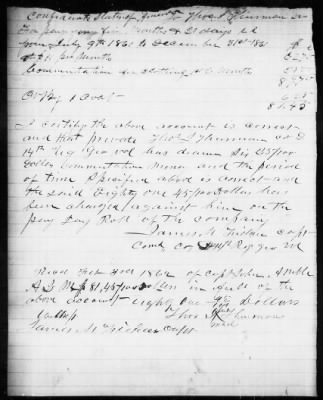 Confederate States of America To Thos J Thurman Dr
For pay for five Months & 21 days
from July 9th 1861 to December 31st 1861
at 11 per Month
Commutation for clothing 6 Months
By 1 Coat
81.45
I certify the above account is correct
and that private Thos J Thurman Co D
14th Reg Geo vol has drawn Six 25/100
Dollars Commutation Money and the period
of time Specified above is correct and
the said Eighty one 45/100 Dollars has
been charged against him on the
pay Roll of the company
James M Fielder Capt
Comd Co 14th Reg Geo vol
Recd Feb 4th 1862 of Capt John Ambler
A Q M $81,45/100 in full of the
above account eighty one 45/100 Dollars
Thos J Thurman
James M Fielder Capt